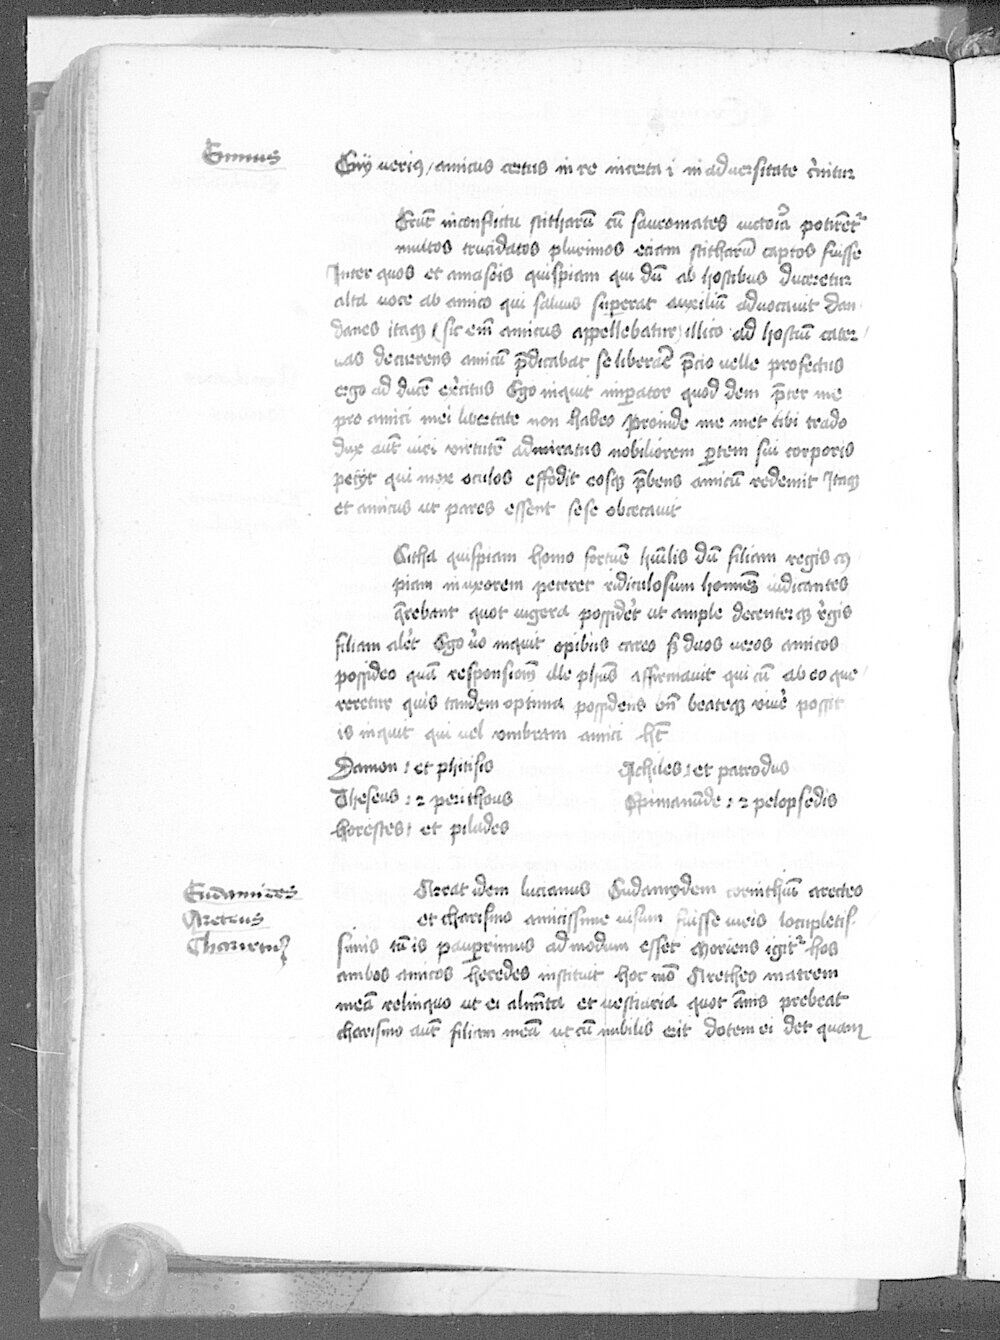 Ennius
Enij versꝰ / amicus certus in re incerta i in adversitate c̄nitur
Ferūt in conflictu scitharū cū sauromates victoīa potirēt᷑
multos trucidatos plurimos eciam scitharū captos fuisse
Inter quos et amasois quispiam qui dū ab hostibus duceretur
alta voce ab amico qui saluus superat auxiliū advocavit Dan
danes itaqꝫ (sic em̄ amicus appellebatur) illico ad hostiū cater
vas decurrens amicū p̄dicabat se liberar̄e p̄cio velle profectus
ergo ad ducē ex̄citus Ego inquit imperator quod dem p̄ter me
pro amici mei libertate non habeo Proinde me met tibi trado
Dux aūt viri virtutē admiratus nobiliorem ꝑtem sui corporis
petijt qui mox oculos effodit eosqꝫ p̄bens amicū redemit Itaqꝫ
et amicus ut pares essent sese obcecavit
Citha quispiam homo fortūe hūilis dū filiam regis
piam in uxorem peteret ridiculosum homines iudicantes
q̄rebant quot iugera possider̄ ut ample decenterqꝫ r̄egis
filiam aler̄et Ego v̄o inquit opibus careo sꝫ duos veros amicos
possideo quā responsionē ille affirmavit qui cū ab eo que
reretur quis tandem optima possidens bn̄ beateqꝫ viver̄e possit
is inquit qui vel umbram amici hēt
Damon : et phitisis
Achiles : et patrodus
Theseus : ⁊ perithous
Epimanūde : ⁊ pelopsedis
horestes : et pilades
Eudamides
Aretęus
Charixenꝰ
Narrat idem lucianus Eudamydem corinthiū areteo
et charisino amicissime usum fuisse viris locupletis
simis cū is pauperimus admodum esset Moriens igit᷑ hos
ambos amicos heredes instituit hoc mō Aretheo matrem
meā relinquo ut ei alimēta et vestiaria quot annis prebeat
charisino aūt filiam meā ut cū nubilis erit dotem ei det quam